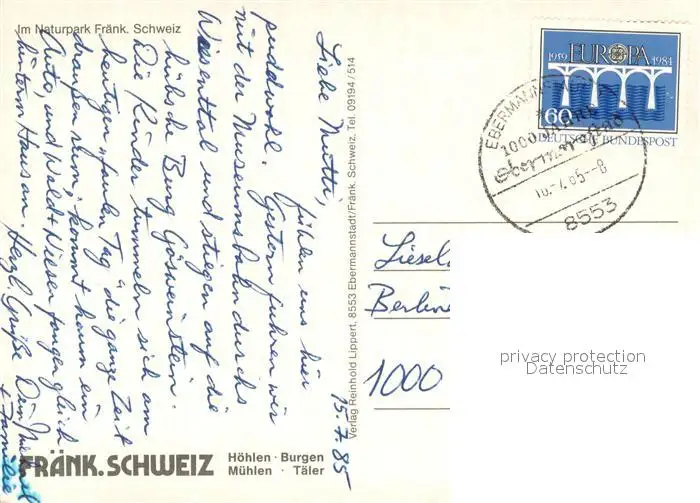 Im Naturpark Fränk. Schweiz
15.7.85
Liebe Mutti,
fühlen uns hier
pudelwohl. Gestern fuhren wir
mit der Museumsbahn durchs
Wiesenttal und stiegen auf die
hübsche Burg Gößweinstein.
Die Kinder tummeln sich am
heutigen „faulen Tag“ die ganze Zeit
draußen rum, kommt kaum ein
Auto, und Wald + Wiesen fangen gleich
hinterm Haus an. Herzl. Grüße Dein
+ Familie
FRÄNK. SCHWEIZ
Höhlen · Burgen
Mühlen · Täler
Verlag Reinhold Lippert, 8553 Ebermannstadt/Fränk. Schweiz, Tel. 09194/514
1959 EUROPA 1984
60
DEUTSCHE BUNDESPOST
1000 Jahre
Ebermannstadt
8553
Liesel
Berlin
1000
privacy protection
Datenschutz